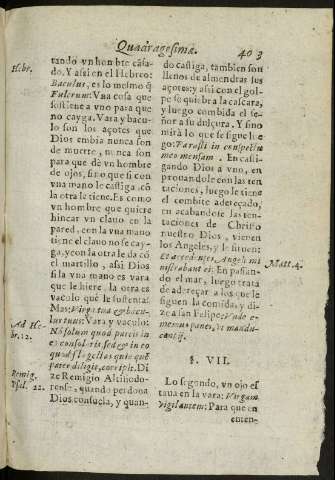 Quadragesimæ. 403
Hebr.
tando vn hombre cãsa-
do. Y assi en el Hebreo:
Baculus, es lo mesmo q̃
Fulcrum: Vna cosa que
sostiene a vno para que
no cayga. Vara y bacu-
lo son los açotes que
Dios embia nunca son
de muerte, nunca son
para que dè vn hombre
de ojos, sino que si con
vna mano le castiga, cõ
la otra le tiene. Es como
vn hombre que quiere
hincar vn clauo en la
pared, con la vna mano
tiene el clauo no se cay-
ga, y con la otra le da cõ
el martillo, assi Dios
si la vna mano es vara
que le hiere, la otra es
vaculo què le sustenta.
Mas: Virga tua & bacu-
lus tuus: Vara y vaculo:
Ad He-
br. 12.
Nõ solum quod parcis in
ea consolaris sed & in eo
quod flagellas quia què
pater diligit, corripit. Di
Remig.
Psal. 22.
ze Remigio Altisiodo-
rense, quando perdona
Dios consuela, y quan-
do castiga, tambien son
llenos de almendras sus
açotes: y assi con el gol-
pe se quiebra la cascara,
y luego combida el se-
ñor a su dulçura. Y sino
mirà lo que se sigue lue-
go: Parasti in conspectu
meo mensam. En casti-
gando Dios a vno, en
prouandole con las ten
taciones, luego le tiene
el combite adereçado,
en acabandose las ten-
taciones de Christo
nuestro Dios, vienen
los Angeles, y le siruen:
Matt. 4.
Et accedunt Angeli mi
nistrabant ei: En passan-
do el mar, luego trata
de adereçar a los que le
siguen la comida, y di-
ze a san Felipe: Vnde e-
memus panes, vt mandu-
cant ij.
§. VII.
Lo segondo, vn ojo es
taua en la vara: Virgam
vigilantem: Para que en
enten-